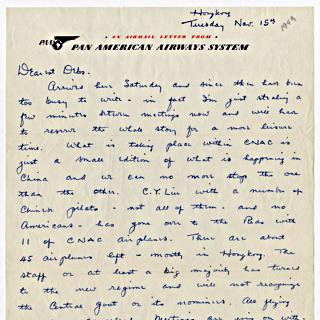 Hongkong
Tuesday Nov. 15th
1949
AN AIRMAIL LETTER FROM
PAA
PAN AMERICAN AIRWAYS SYSTEM
Dearest Debs.
Arrived here Saturday and since then has been
too busy to write - in fact I'm just stealing a
few minutes between meetings now and will have
to reserve the whole story for a more leisure
time. What is taking place within CNAC is
just a small edition of what is happening in
China and we can no more stop the one
than the other. C.Y. Liu with a number of
Chinese pilots - not all of them - and no
Americans - has gone over to the Reds with
11 of CNAC airplanes. There are about
45 airplanes left - mostly in Hongkong. The
staff or at least a big majority has turned
to the new regime and will not recognize
the Central Govt or its nominees. All flying
Meetings are going on with